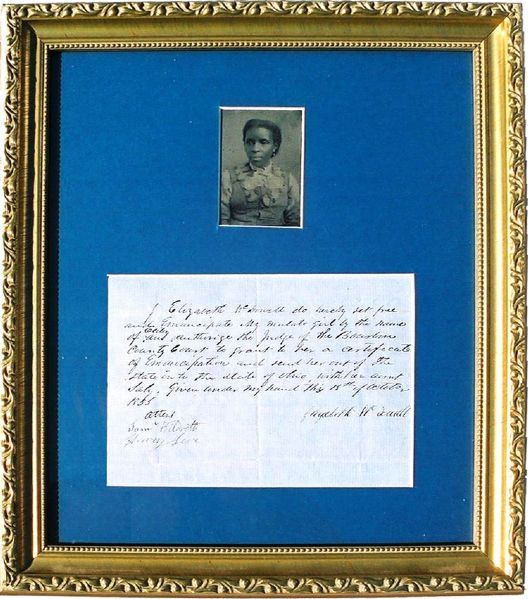 I Elizabeth McDowell do hereby set free
and Emancipate my mulatto girl by the name
of and Authorize the Judge of the Bourbon
County Court to grant to her a certificate
of Emancipation and send her out of the
State to the state of Ohio with her
July. Given under my hand this 18th of October
1855
Attest
Elizabeth McDowell
Sam
Harvey